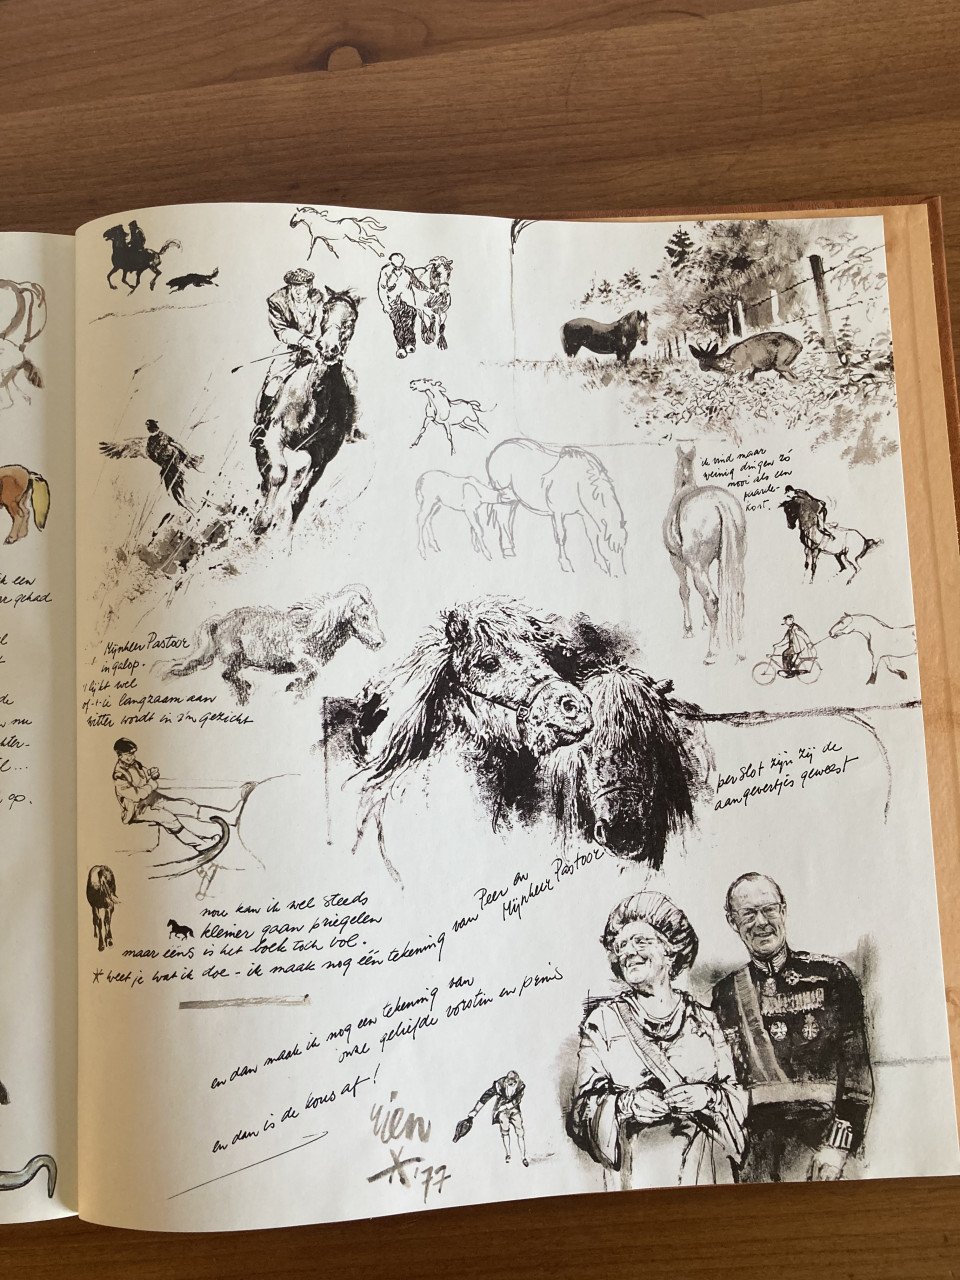 ik een
gehad
de
nu
op.
ik vind maar
weinig dingen zó
mooi als een
paarde-
kont.
Mijnheer Pastoor
in galop.
lijkt wel
of-t-ie langzaam aan
witter wordt in z'n gezicht
per slot zijn zij de
aangevertjes geweest
nou kan ik wel steeds
kleiner gaan priegelen
maar ééns is het boek toch vol.
* weet je wat ik doe - ik maak nog één tekening van Peer en
Mijnheer Pastoor
en dan maak ik nog een tekening van
onze geliefde vorstin en prins
en dan is de kous af!
rien
'77